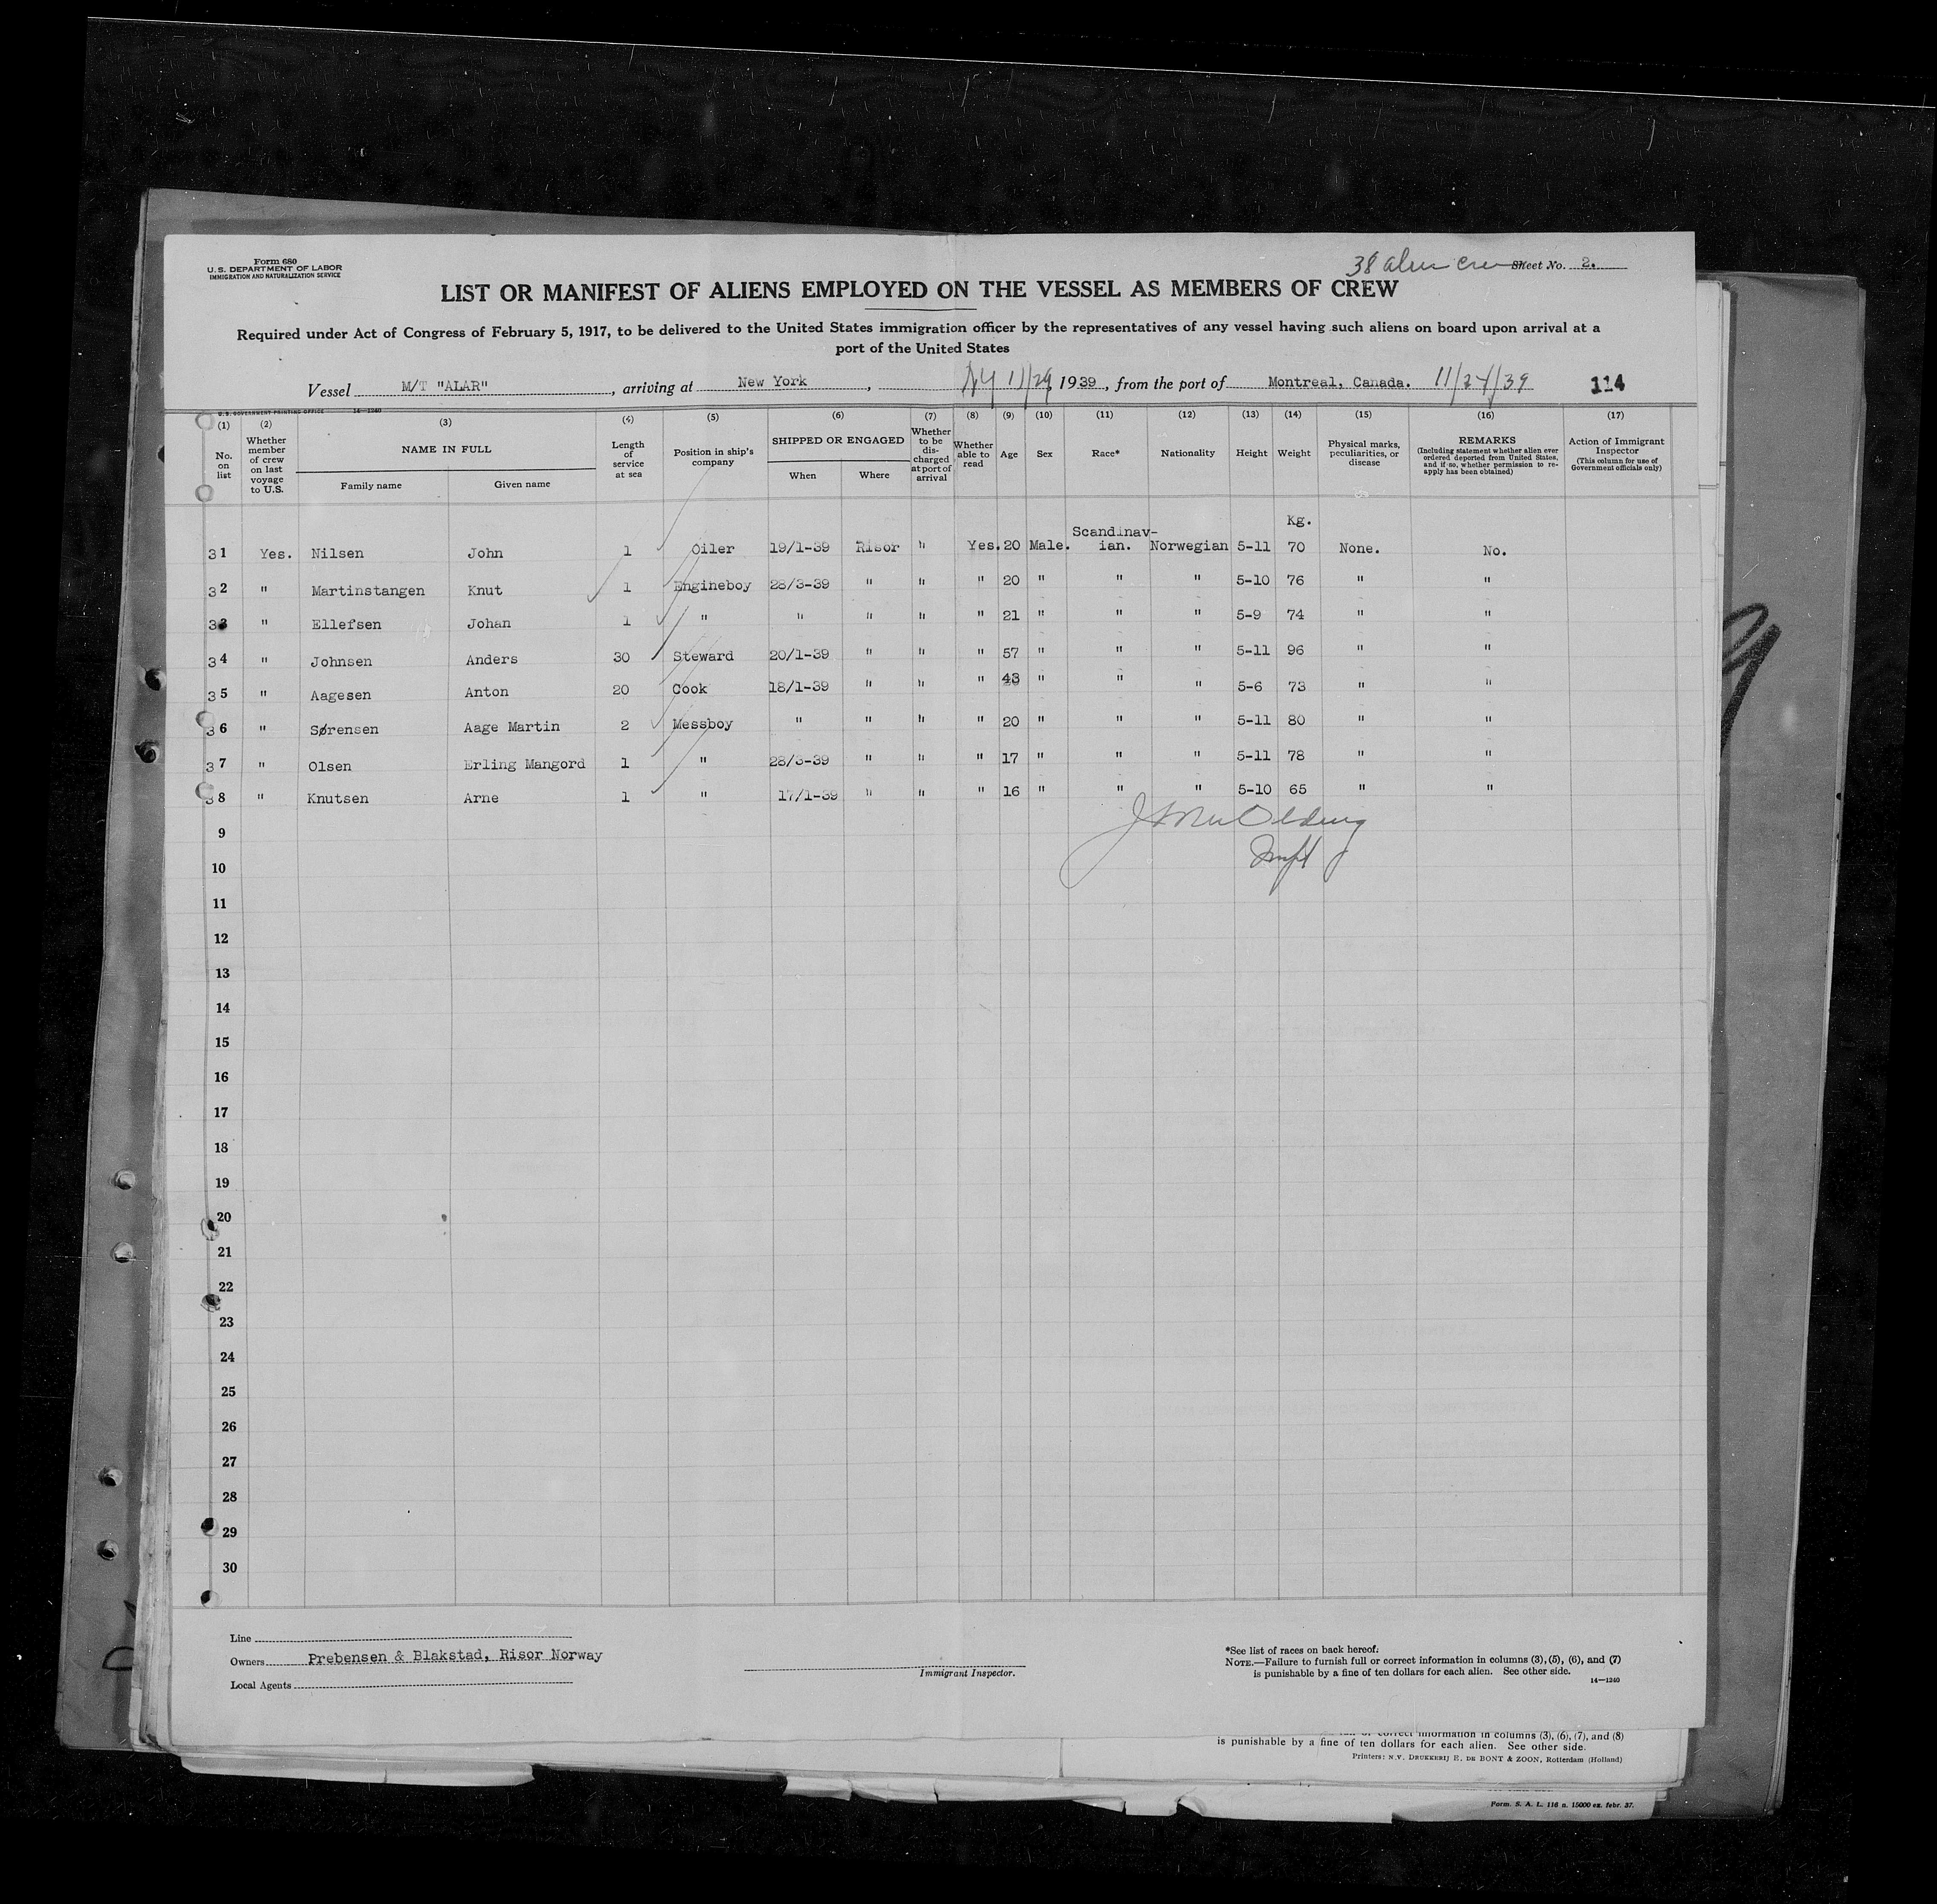 Form 680
U. S. DEPARTMENT OF LABOR
IMMIGRATION AND NATURALIZATION SERVICE
38 alien crew Sheet No. 2.
LIST OR MANIFEST OF ALIENS EMPLOYED ON THE VESSEL AS MEMBERS OF CREW
Required under Act of Congress of February 5, 1917, to be delivered to the United States immigration officer by the representatives of any vessel having such aliens on board upon arrival at a
port of the United States
Vessel M/T "ALAR", arriving at New York, NY 11/29 1939, from the port of Montreal, Canada. 11/24/39 114
U. S. GOVERNMENT PRINTING OFFICE 14—1240
(1) No. on list
(2) Whether member of crew on last voyage to U.S.
(3) NAME IN FULL
Family name Given name
(4) Length of service at sea
(5) Position in ship's company
(6) SHIPPED OR ENGAGED
When Where
(7) Whether to be discharged at port of arrival
(8) Whether able to read
(9) Age
(10) Sex
(11) Race*
(12) Nationality
(13) Height
(14) Weight
(15) Physical marks, peculiarities, or disease
(16) REMARKS
(Including statement whether alien ever ordered deported from United States, and if so, whether permission to reapply has been obtained)
(17) Action of Immigrant Inspector
(This column for use of Government officials only)
Kg.
31 Yes. Nilsen John 1 Oiler 19/1-39 Risor " Yes. 20 Male. Scandinav-ian. Norwegian 5-11 70 None. No.
32 " Martinstangen Knut 1 Engineboy 28/3-39 " " " 20 " " " 5-10 76 " "
33 " Ellefsen Johan 1 " " " " " 21 " " " 5-9 74 " "
34 " Johnsen Anders 30 Steward 20/1-39 " " " 57 " " " 5-11 96 " "
35 " Aagesen Anton 20 Cook 18/1-39 " " " 43 " " " 5-6 73 " "
36 " Sørensen Aage Martin 2 Messboy " " " " 20 " " " 5-11 80 " "
37 " Olsen Erling Mangord 1 " 28/3-39 " " " 17 " " " 5-11 78 " "
38 " Knutsen Arne 1 " 17/1-39 " " " 16 " " " 5-10 65 " "
9
10
11
12
13
14
15
16
17
18
19
20
21
22
23
24
25
26
27
28
29
30
Line
Owners Prebensen & Blakstad, Risor Norway
Local Agents
Immigrant Inspector.
*See list of races on back hereof.
NOTE.—Failure to furnish full or correct information in columns (3), (5), (6), and (7)
is punishable by a fine of ten dollars for each alien. See other side.
14—1240
or correct information in columns (3), (6), (7), and (8)
is punishable by a fine of ten dollars for each alien. See other side.
Printers: N.V. DRUKKERIJ F. DE BONT & ZOON, Rotterdam (Holland)
Form. S. A. L. 116 n. 15000 ex. febr. 37.